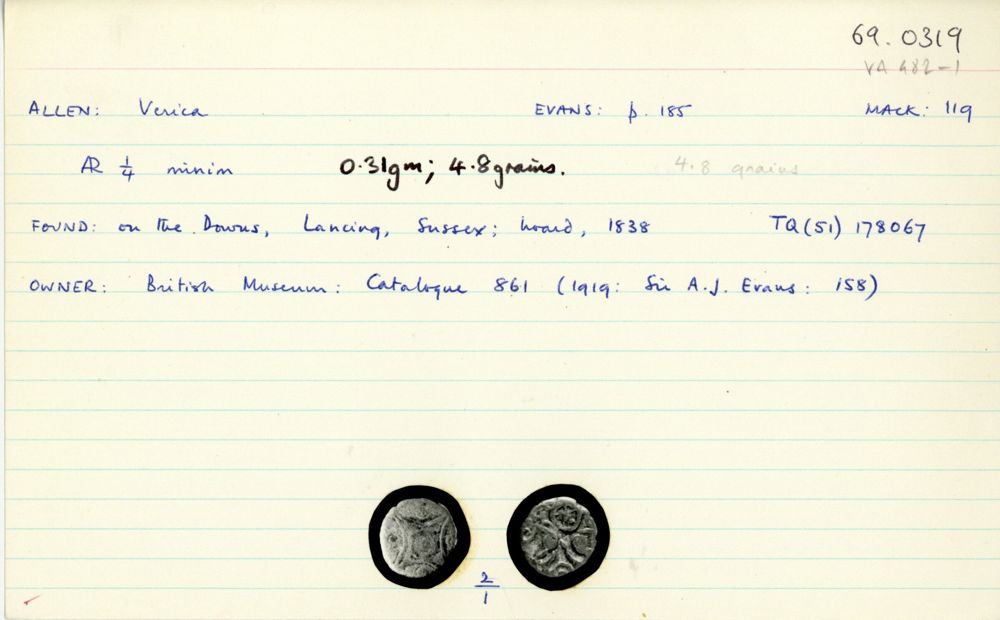 69.0319
VA 482-1
ALLEN: Verica EVANS: p. 185 MACK: 119
AR 1/4 minim 0.31gm; 4.8grains. 4.8 grains
FOUND: on the Downs, Lancing, Sussex; hoard, 1838 TQ(51) 178067
OWNER: British Museum: Catalogue 861 (1919: Sir A.J. Evans: 158)
2/1